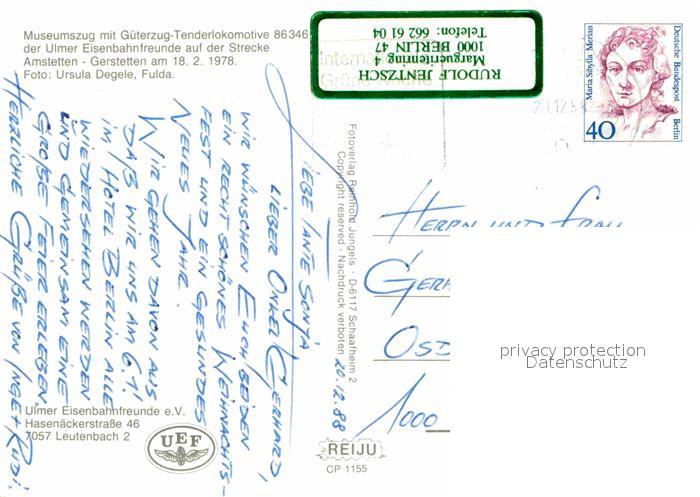 Museumszug mit Güterzug-Tenderlokomotive 86346
der Ulmer Eisenbahnfreunde auf der Strecke
Amstetten - Gerstetten am 18. 2. 1978.
Foto: Ursula Degele, Fulda.
RUDOLF JENTZSCH
Margueritenring 4
1000 BERLIN 47
Telefon: 662 61 04
Internat
Grüne Woche
21.12.88
Deutsche Bundespost Berlin
Maria Sibylla Merian
40
20.12.88
LIEBE TANTE SONJA
LIEBER ONKEL GERHARD,
WIR WÜNSCHEN EUCH BEIDEN
EIN RECHT SCHÖNES WEIHNACHTS-
FEST UND EIN GESUNDES
NEUES JAHR.
WIR GEHEN DAVON AUS
DAß WIR UNS AM 6.1.
IM HOTEL BERLIN ALLE
WIEDERSEHEN WERDEN
UND GEMEINSAM EINE
GROßE FEIER ERLEBEN.
HERZLICHE GRÜßE VON INGE + RUDI.
Fotoverlag Reinhold Jungels · D-6117 Schaafheim 2
Copyright reserved · Nachdruck verboten
HERRN UND FRAU
GERH
OSD
1000
privacy protection
Datenschutz
Ulmer Eisenbahnfreunde e.V.
Hasenäckerstraße 46
7057 Leutenbach 2
UEF
REIJU
CP 1155